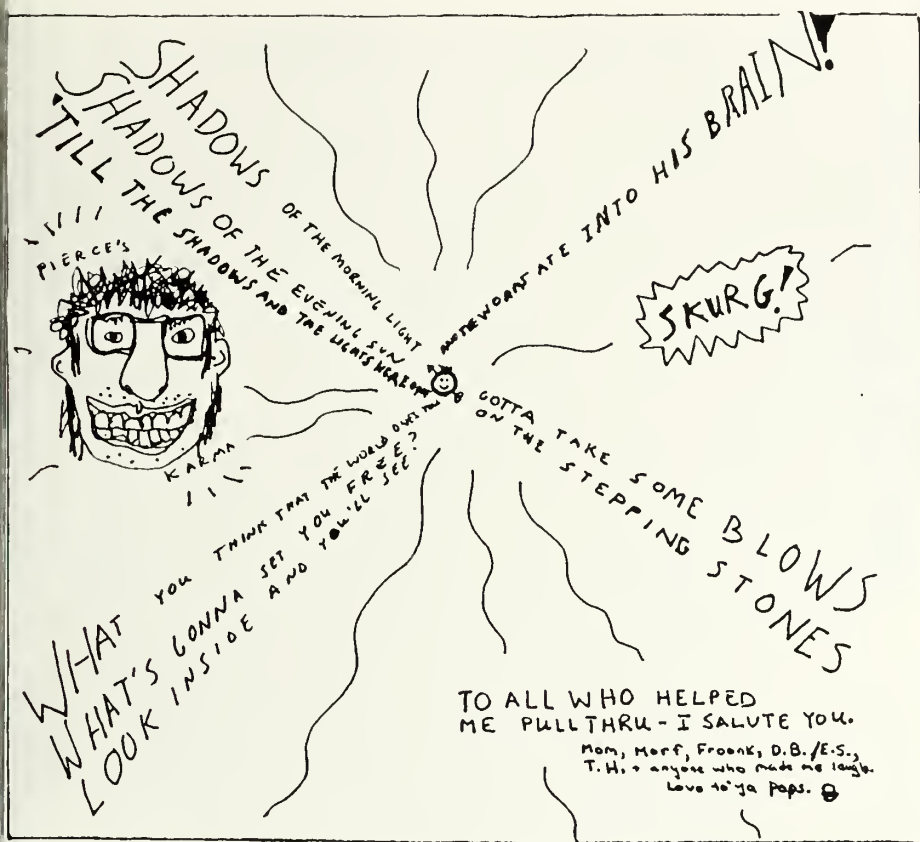 SHADOWS OF THE MORNING LIGHT
SHADOWS OF THE EVENING SUN
'TILL THE SHADOWS AND THE LIGHTS WERE ONE
AND THE WORMS ATE INTO HIS BRAIN!
PIERCE'S
KARMA
SKURG!
GOTTA TAKE SOME BLOWS
ON THE STEPPING STONES
WHAT YOU THINK THAT THE WORLD OWES YOU
WHAT'S GONNA SET YOU FREE?
LOOK INSIDE AND YOU'LL SEE.
TO ALL WHO HELPED
ME PULL THRU - I SALUTE YOU.
Mom, Morf, Froonk, D.B./E.S.,
T.H. + anyone who made me laugh.
Love to ya Pops.